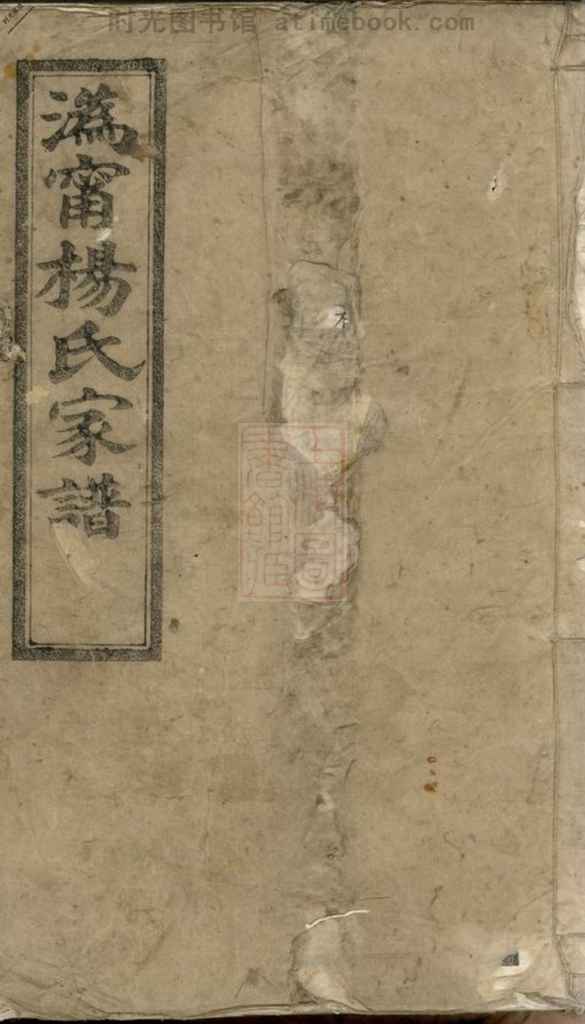 时光图书馆 atimebook.com
溈甯楊氏家譜